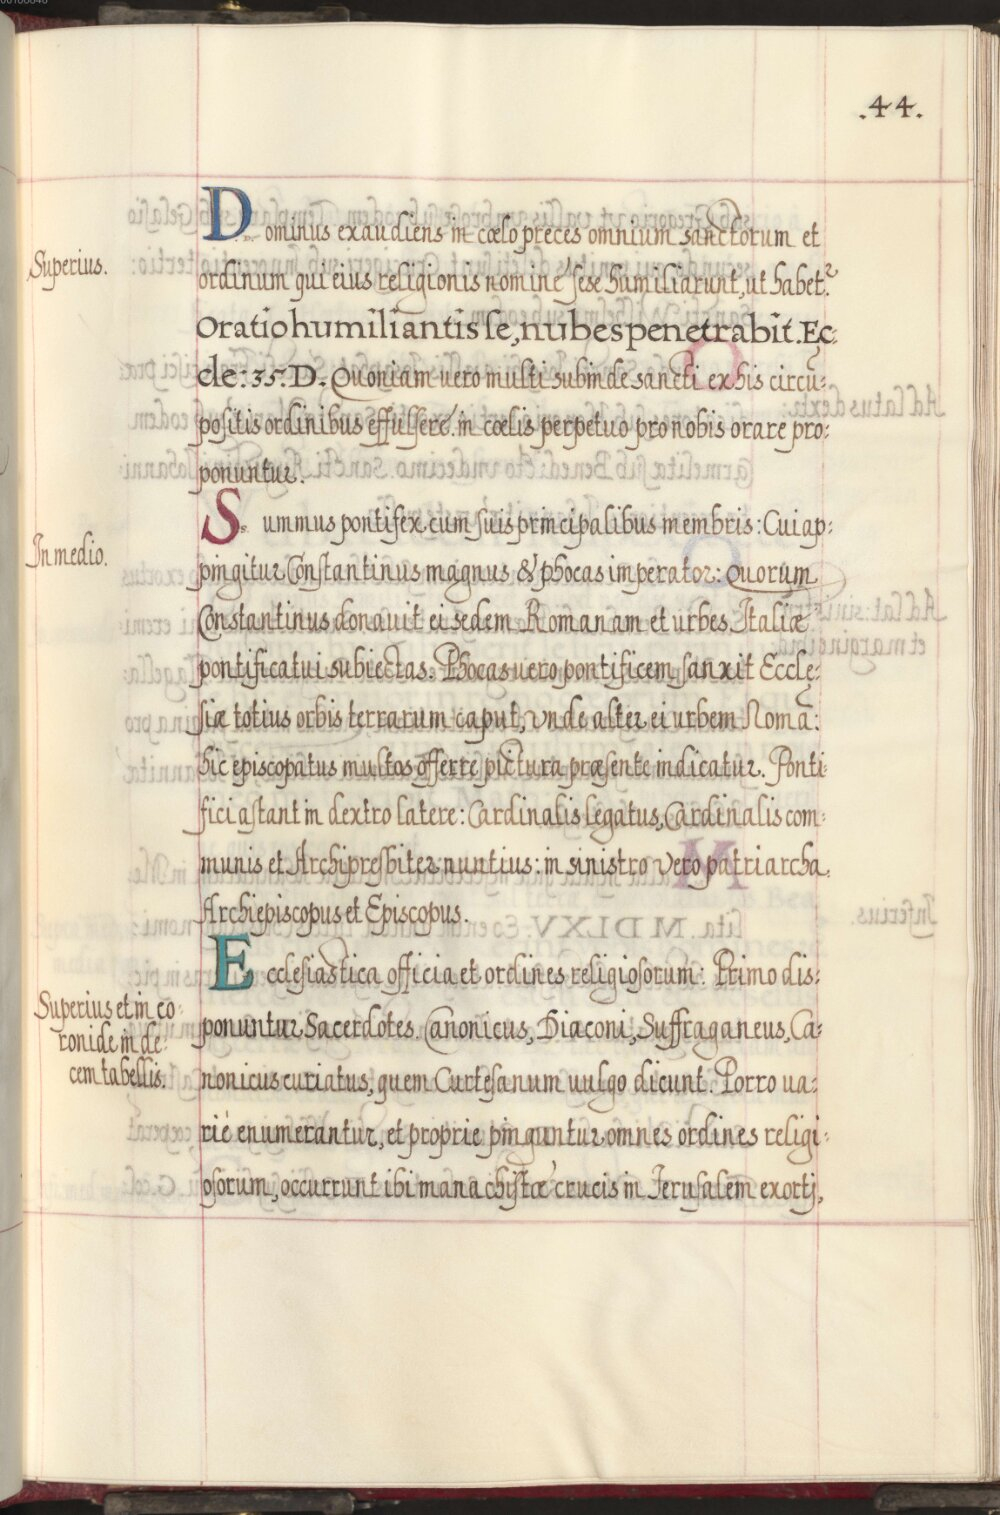 .44.
Superius.
Dominus exaudiens in cœlo preces omnium sanctorum et
ordinum qui eius religionis nomine sese humiliarunt, ut habet.
Oratio humiliantis se, nubes penetrabit. Ec:
cle: 35. D. Quoniam uero multi subinde sancti ex his circũ:
positis ordinibus effulsere. in cœlis perpetuo pro nobis orare pro:
ponuntur.
In medio.
Summus pontifex cum suis principalibus membris: Cui ap:
pingitur Constantinus magnus & phocas imperator: Quorum
Constantinus donauit ei sedem Romanam et urbes Italiæ
pontificatui subiectas. Phocas uero pontificem sanxit Eccle:
siæ totius orbis terrarum caput, vnde alter ei urbem Romã:
hic episcopatus multos offerre pictura præsente indicatur. Ponti:
fici astant in dextro latere: Cardinalis legatus, Cardinalis com:
munis et Archipresbiter nuntius: in sinistro vero patriarcha,
Archiepiscopus et Episcopus.
Superius et in co:
ronide in de:
cem tabellis.
Ecclesiastica officia et ordines religiosorum: Primo dis:
ponuntur Sacerdotes. Canonicus, Diaconi, Suffraganeus, Ca:
nonicus curiatus, quem Curtesanum uulgo dicunt. Porro ua:
rié enumerantur, et proprie pinguntur omnes ordines religi:
osorum, occurrunt ibi manachistæ crucis in Ierusalem exorti,